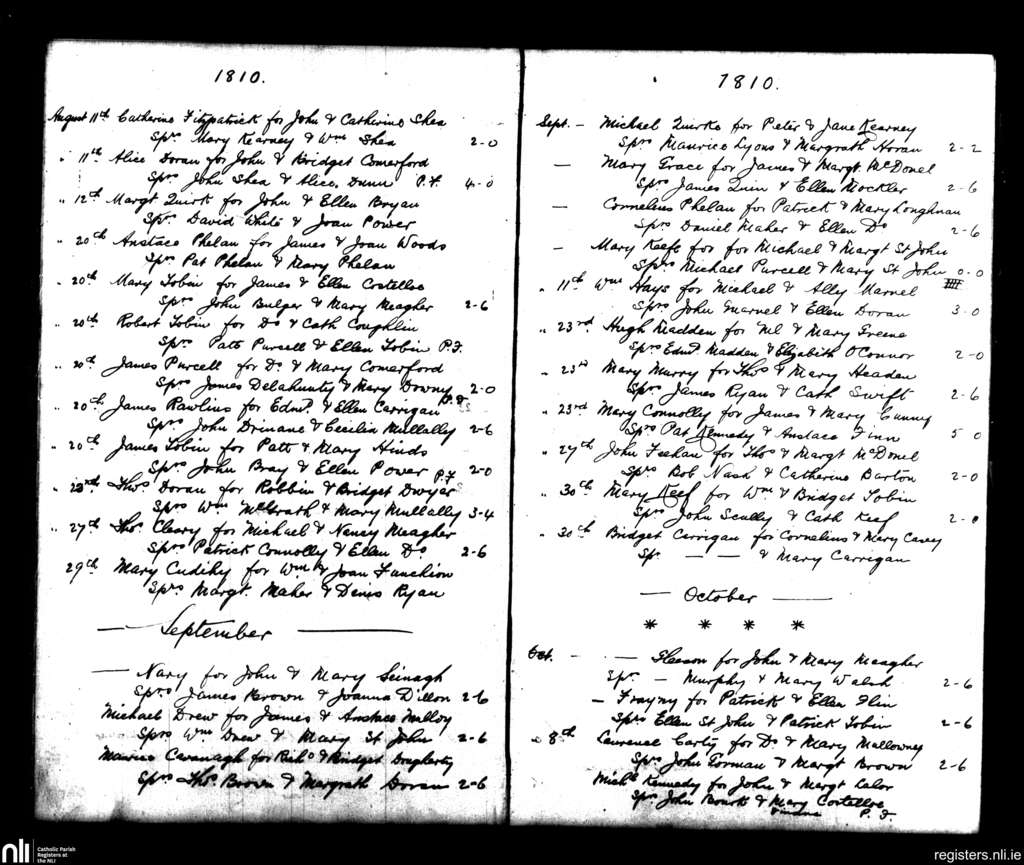 1810.
August 11th Catherine Fitzpatrick for John & Catherine Shea
Sprs Mary Kearney & Wm Shea 2-0
" 11th Alice Doran for John & Bridget Comerford
Sprs John Shea & Alice Dunn P.F. 4-0
" 12th Margt Quirk for John & Ellen Bryan
Spr. David White & Joan Power
" 20th Anstace Phelan for James & Joan Woods
Sprs Pat Phelan & Mary Phelan
" 20th Mary Tobin for James & Ellen Costelloe
Sprs John Bulger & Mary Meagher 2-6
" 20th Robert Tobin for Do & Cath Coughlin
Sprs Patt Purcell & Ellen Tobin P.F.
" 20th James Purcell for Do. & Mary Comerford
Sprs James Delahunty & Mary Downy 2-0
" 20th James Rawlins for Edmd. & Ellen Carrigan
Sprs John Drinane & Cecilia Mullally 2-6
" 20th James Tobin for Patt & Mary Hinds
Sprs John Bray & Ellen Power P.F. 2-0
" 23rd Thos Doran for Robbin & Bridget Dwyer
Sprs Wm McGrath & Mary Mullally 3-4
" 27th Thos. Cleary for Michael & Nancy Meagher
Sprs Patrick Connolly & Ellen Do 2-6
29th Mary Cudihy for Wm & Joan Funchion
Sprs Margt. Maher & Denis Ryan
— September —
— Nary for John & Mary Seinagh
Sprs James Brown & Joanna Dillon 2-6
Michael Drew for James & Anstace Mulloy
Sprs Wm Drew & Mary St John 2-6
Maurice Cavanagh for Richd & Bridget Dogherty
Sprs Thos Brown & Margrath Doran 2-6
1810.
Sept. — Michael Quirke for Peter & Jane Kearney
Sprs Maurice Lyons & Margrath Horan 2-2
— Mary Grace for James & Margt. McDonel
Sprs James Quin & Ellen Mockler 2-6
— Cornelius Phelan for Patrick & Mary Loughnan
Sprs Daniel Maher & Ellen Do 2-6
— Mary Keefe for for Michael & Margt St John
Sprs Michael Purcell & Mary St John 0-0
" 11th Wm Hays for Michael & Ally Marnel
Sprs John Marnel & Ellen Doran 3-0
" 23rd Hugh Madden for Ml & Mary Greene
Sprs Edmd. Madden & Elizabeth O'Connor 2-0
" 23rd Mary Murry for Thos & Mary Headen
Sprs James Ryan & Cath Swift 2-6
" 23rd Mary Connolly for James & Mary Cunny
Sprs Pat Kennedy & Anstace Finn 5 0
" 27th John Feehan for Thos & Margt McDonel
Sprs Bob Nash & Catherine Barton 2-0
" 30th Mary Keef for Wm & Bridget Tobin
Sprs John Scully & Cath Keef 2-0
" 30th Bridget Carrigan for Cornelius & Mary Casey
Spr. — — & Mary Carrigan
— October —
* * * *
Oct. - — Gleeson for John & Mary Meagher
Spr. — Murphy & Mary Walsh 2-6
— Frayny for Patrick & Ellen Flin
Sprs Ellen St John & Patrick Tobin 2-6
" 8th Laurence Carty for Do & Mary Mullowney
Sprs John Gorman & Margt Brown 2-6
Michl Kennedy for John & Margt Lalor
Sprs John Bourk & Mary Costelloe
P. F.
nli Catholic Parish Registers at the NLI
registers.nli.ie